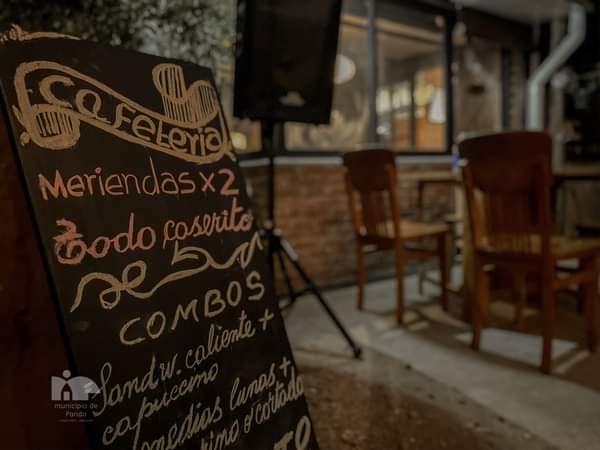 Cafeteria
Meriendas x2
Todo caserito
COMBOS
Sandw. caliente +
capuccino
medias lunas +
o cortado
TO
municipio de
Pando